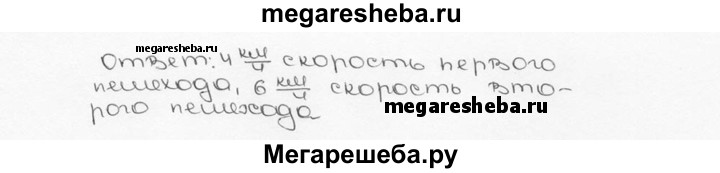 megaresheba.ru
Ответ: 4 км/ч скорость первого
megaresheba.ru
пешехода, 6 км/ч скорость вто-
рого пешехода
megaresheba.ru
Мегарешеба.ру